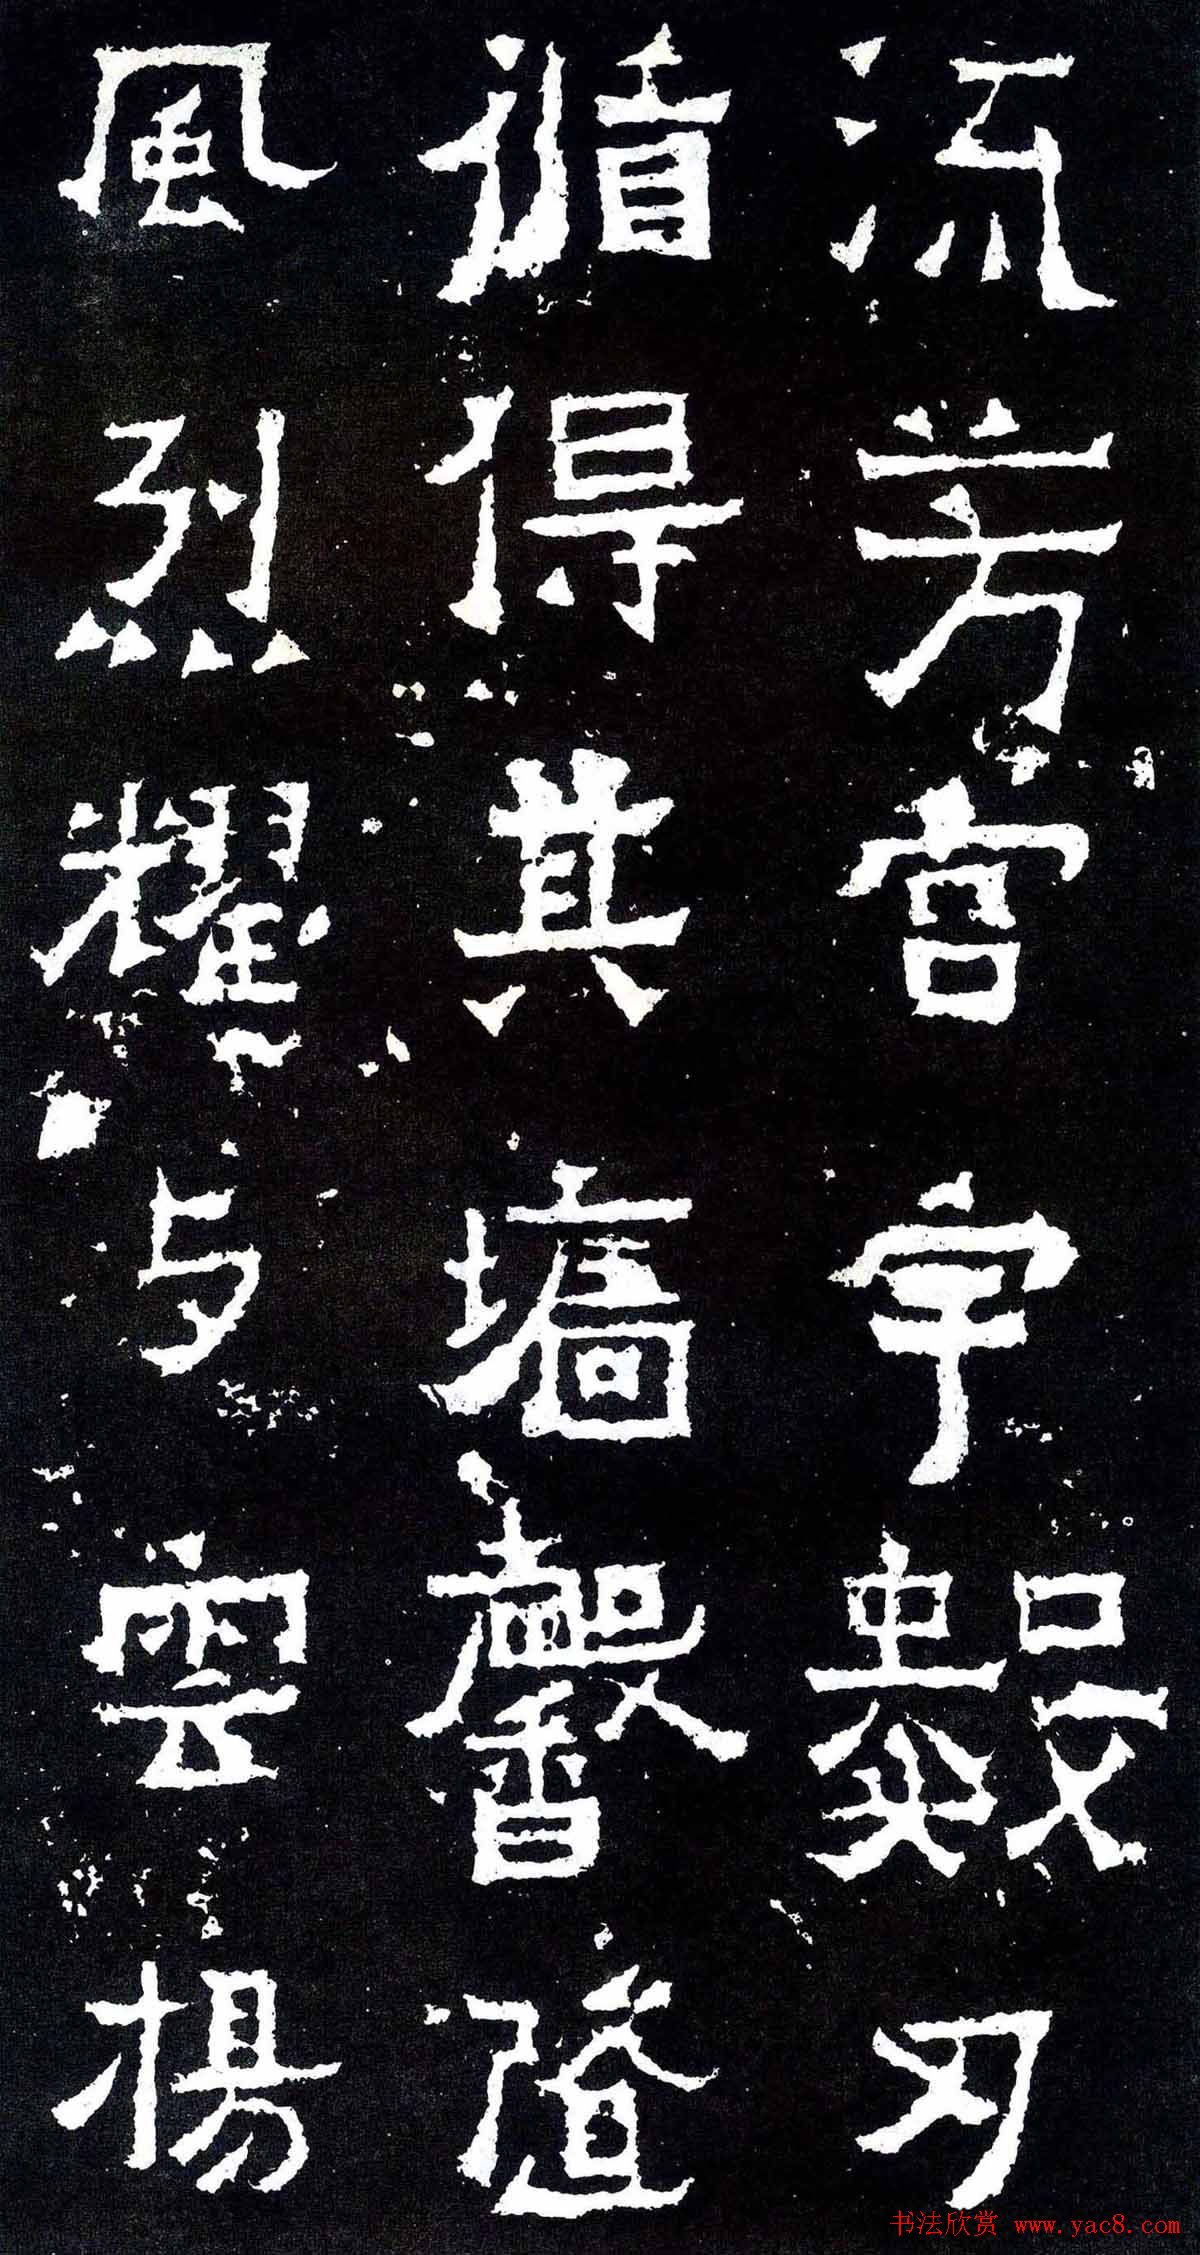 流芳宮宇數刃
循得其墻馨隆
風烈耀与雲揚
书法欣赏 www.yac8.com